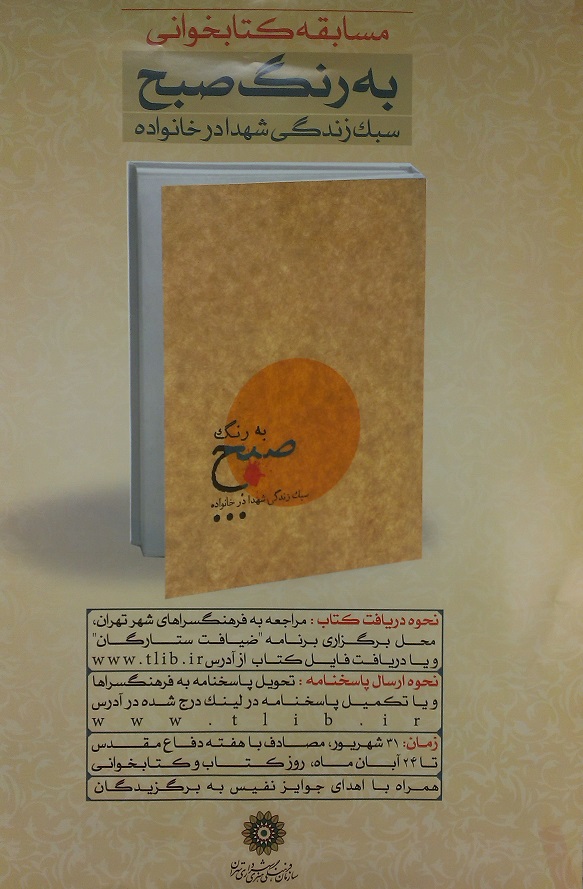 مسابقه کتابخوانی
به رنگ صبح
سبک زندگی شهدا در خانواده
به رنگ
صبح
سبک زندگی شهدا در خانواده
نحوه دریافت کتاب : مراجعه به فرهنگسراهای شهر تهران،
محل برگزاری برنامه "ضیافت ستارگان"
و یا دریافت فایل کتاب از آدرس www.tlib.ir
نحوه ارسال پاسخنامه : تحویل پاسخنامه به فرهنگسراها
و یا تکمیل پاسخنامه در لینک درج شده در آدرس
www.tlib.ir
زمان: ۳۱ شهریور، مصادف با هفته دفاع مقدس
تا ۲۴ آبان ماه، روز کتاب و کتابخوانی
همراه با اهدای جوایز نفیس به برگزیدگان
سازمان فرهنگی هنری شهرداری تهران